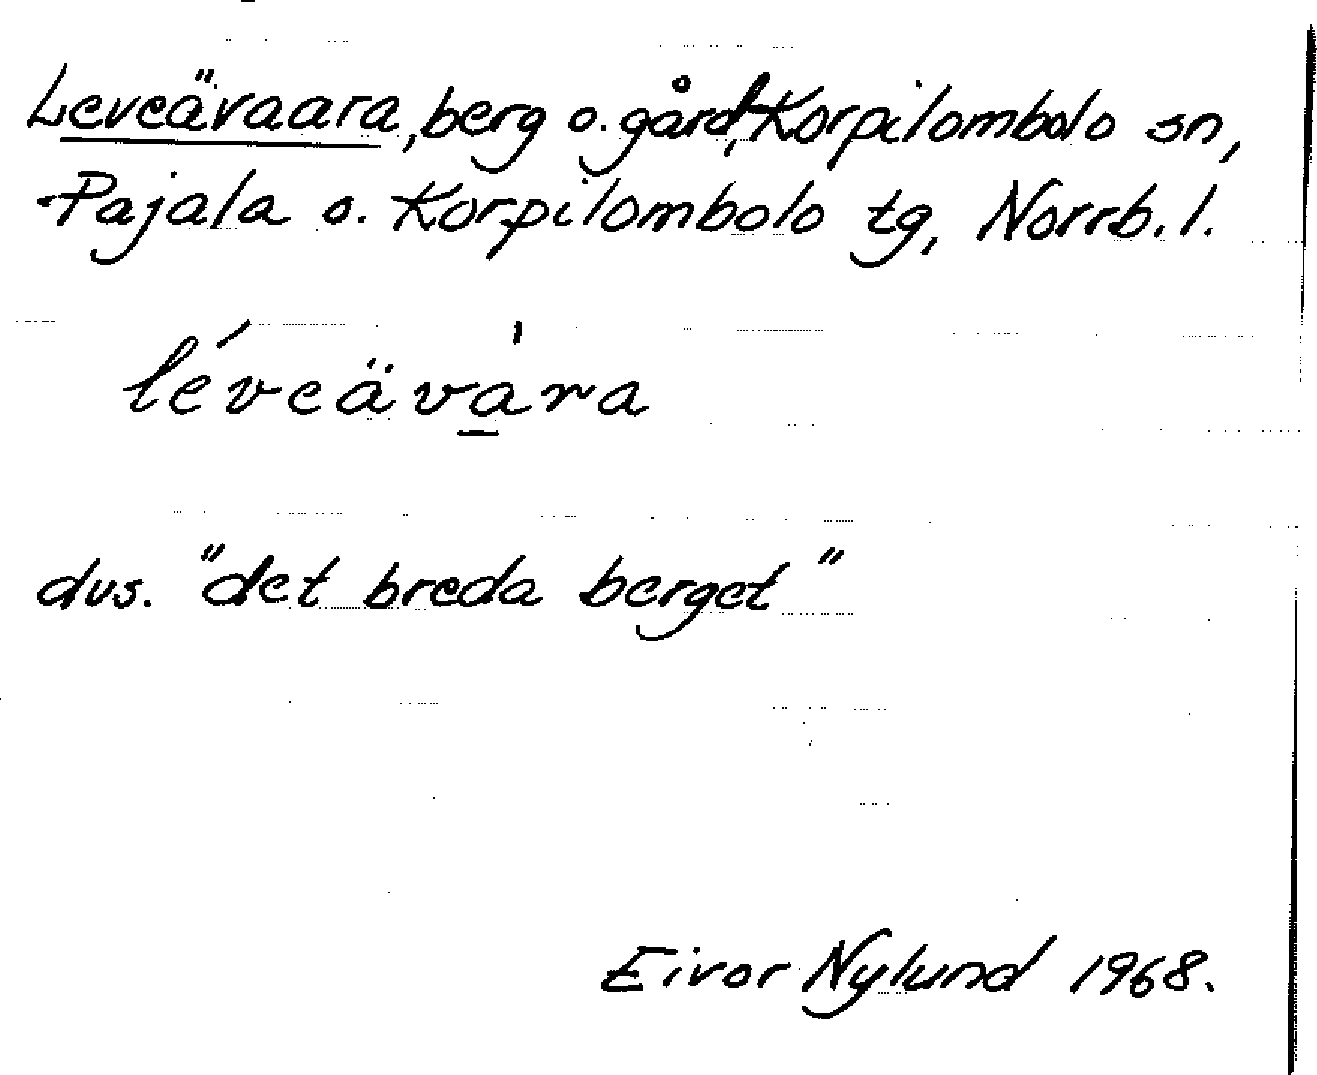 Leveävaara, berg o. gård, Korpilombolo sn,
Pajala o. Korpilombolo tg, Norrb. l.
lé́veävạ̄̀ra
dvs. "det breda berget"
Eivor Nylund 1968.